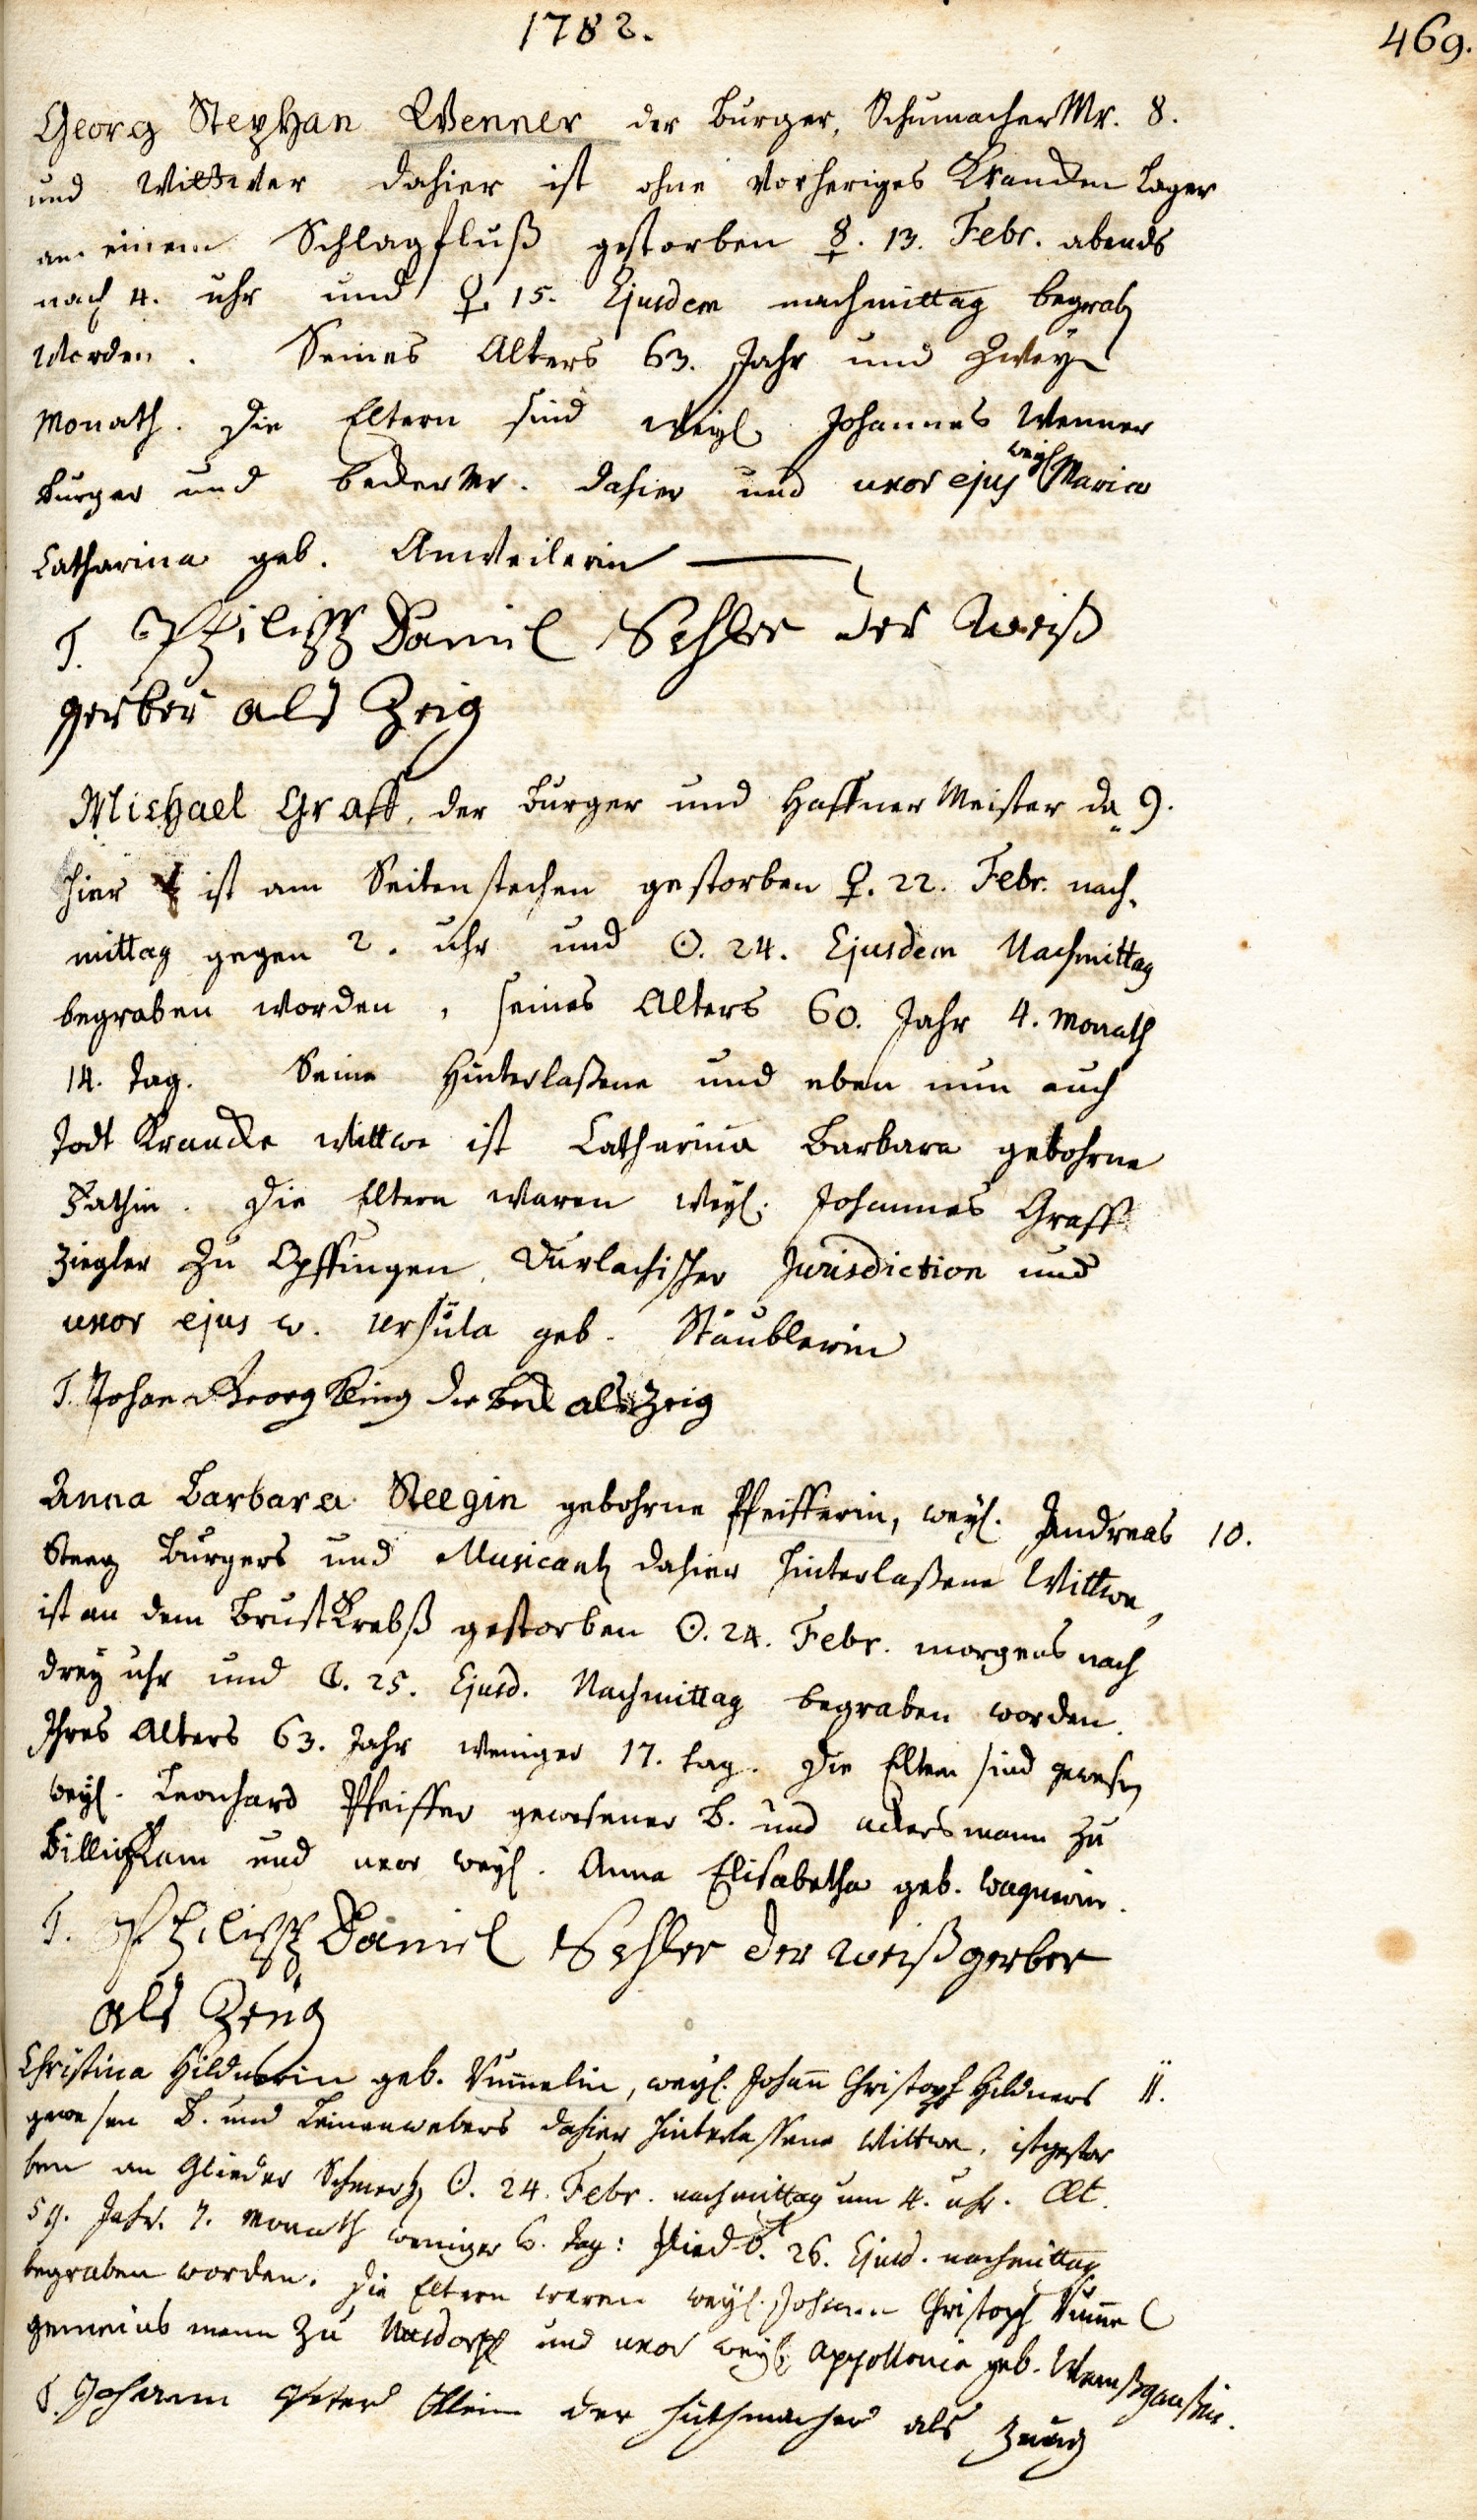 1782.
469.
Georg Stephan Wenner der burger, Schumacher Mr. 8.
und Wittwer dahier ist ohne vorheriges Krancken Lager
an einem Schlagfluß gestorben ☿. 13. Febr. abends
nach 4. uhr und ♀. 15. Ejusdem nachmittag begrab
worden. Seines Alters 63. Jahr und zwey
Monath. Die Eltern sind weyl. Johannes Wenner
burger und becker Mr. dahier und uxor ejus weyl Maria
Catharina geb. Anweilerin
T. Philipp Daniel Sehler der Weiß
gerber als Zeig
Michael Graff, der burger und Haffner Meister da 9.
hier ist am Seitenstechen gestorben ♀. 22. Febr. nach-
mittag gegen 2. uhr und ☉. 24. Ejusdem Nachmittag
begraben worden, seines Alters 60. Jahr 4. Monath
14. tag. Seine Hinterlaßene und eben nun auch
todt Krancke Wittwe ist Catharina Barbara gebohrne
Fathin. Die Eltern waren weyl. Johannes Graff
Ziegler zu Opffingen, Durlachischer Jurisdiction und
uxor ejus w. Ursula geb. Stäublerin
T. Johan Georg King der beck als Zeig
Anna Barbara Steegin gebohrne Pfeifferin, weyl. Andreas 10.
Steeg burgers und Musicantz dahier hinterlaßene Wittwe,
ist an dem BrustKrebß gestorben ☉. 24. Febr. morgens nach
drey uhr und ☾. 25. Ejusd. Nachmittag begraben worden.
Ihres Alters 63. Jahr weniger 17. tag. Die Eltern sind gewesen
weyl. Leonhard Pfeiffer gewesener B. und ackersmann zu
Billigkam und uxor weyl. Anna Elisabetha geb. Wagnerin.
T. Philipp Daniel Sehler der weißgerber
als Zeug
Christina Hildnerin geb. Vumelin, weyl. Johann Christoph Hildners 11.
gewesen B. und Leinenwebers dahier hinterlassene Wittwe, ist gestor
ben an Glieder Schmertz ☉. 24. Febr. nachmittag um 4. uhr. Æt.
59. Jahr. 7. Monath weniger 6. tag: und ♂. 26. Ejusd. nachmittag
begraben worden. Die Eltern waren weyl. Johann Christoph Vumel
gemeinsmann zu Nusdorff und uxor weyl. Appollonia geb.
T. Johann Peter Klein der huthmacher als Zeug